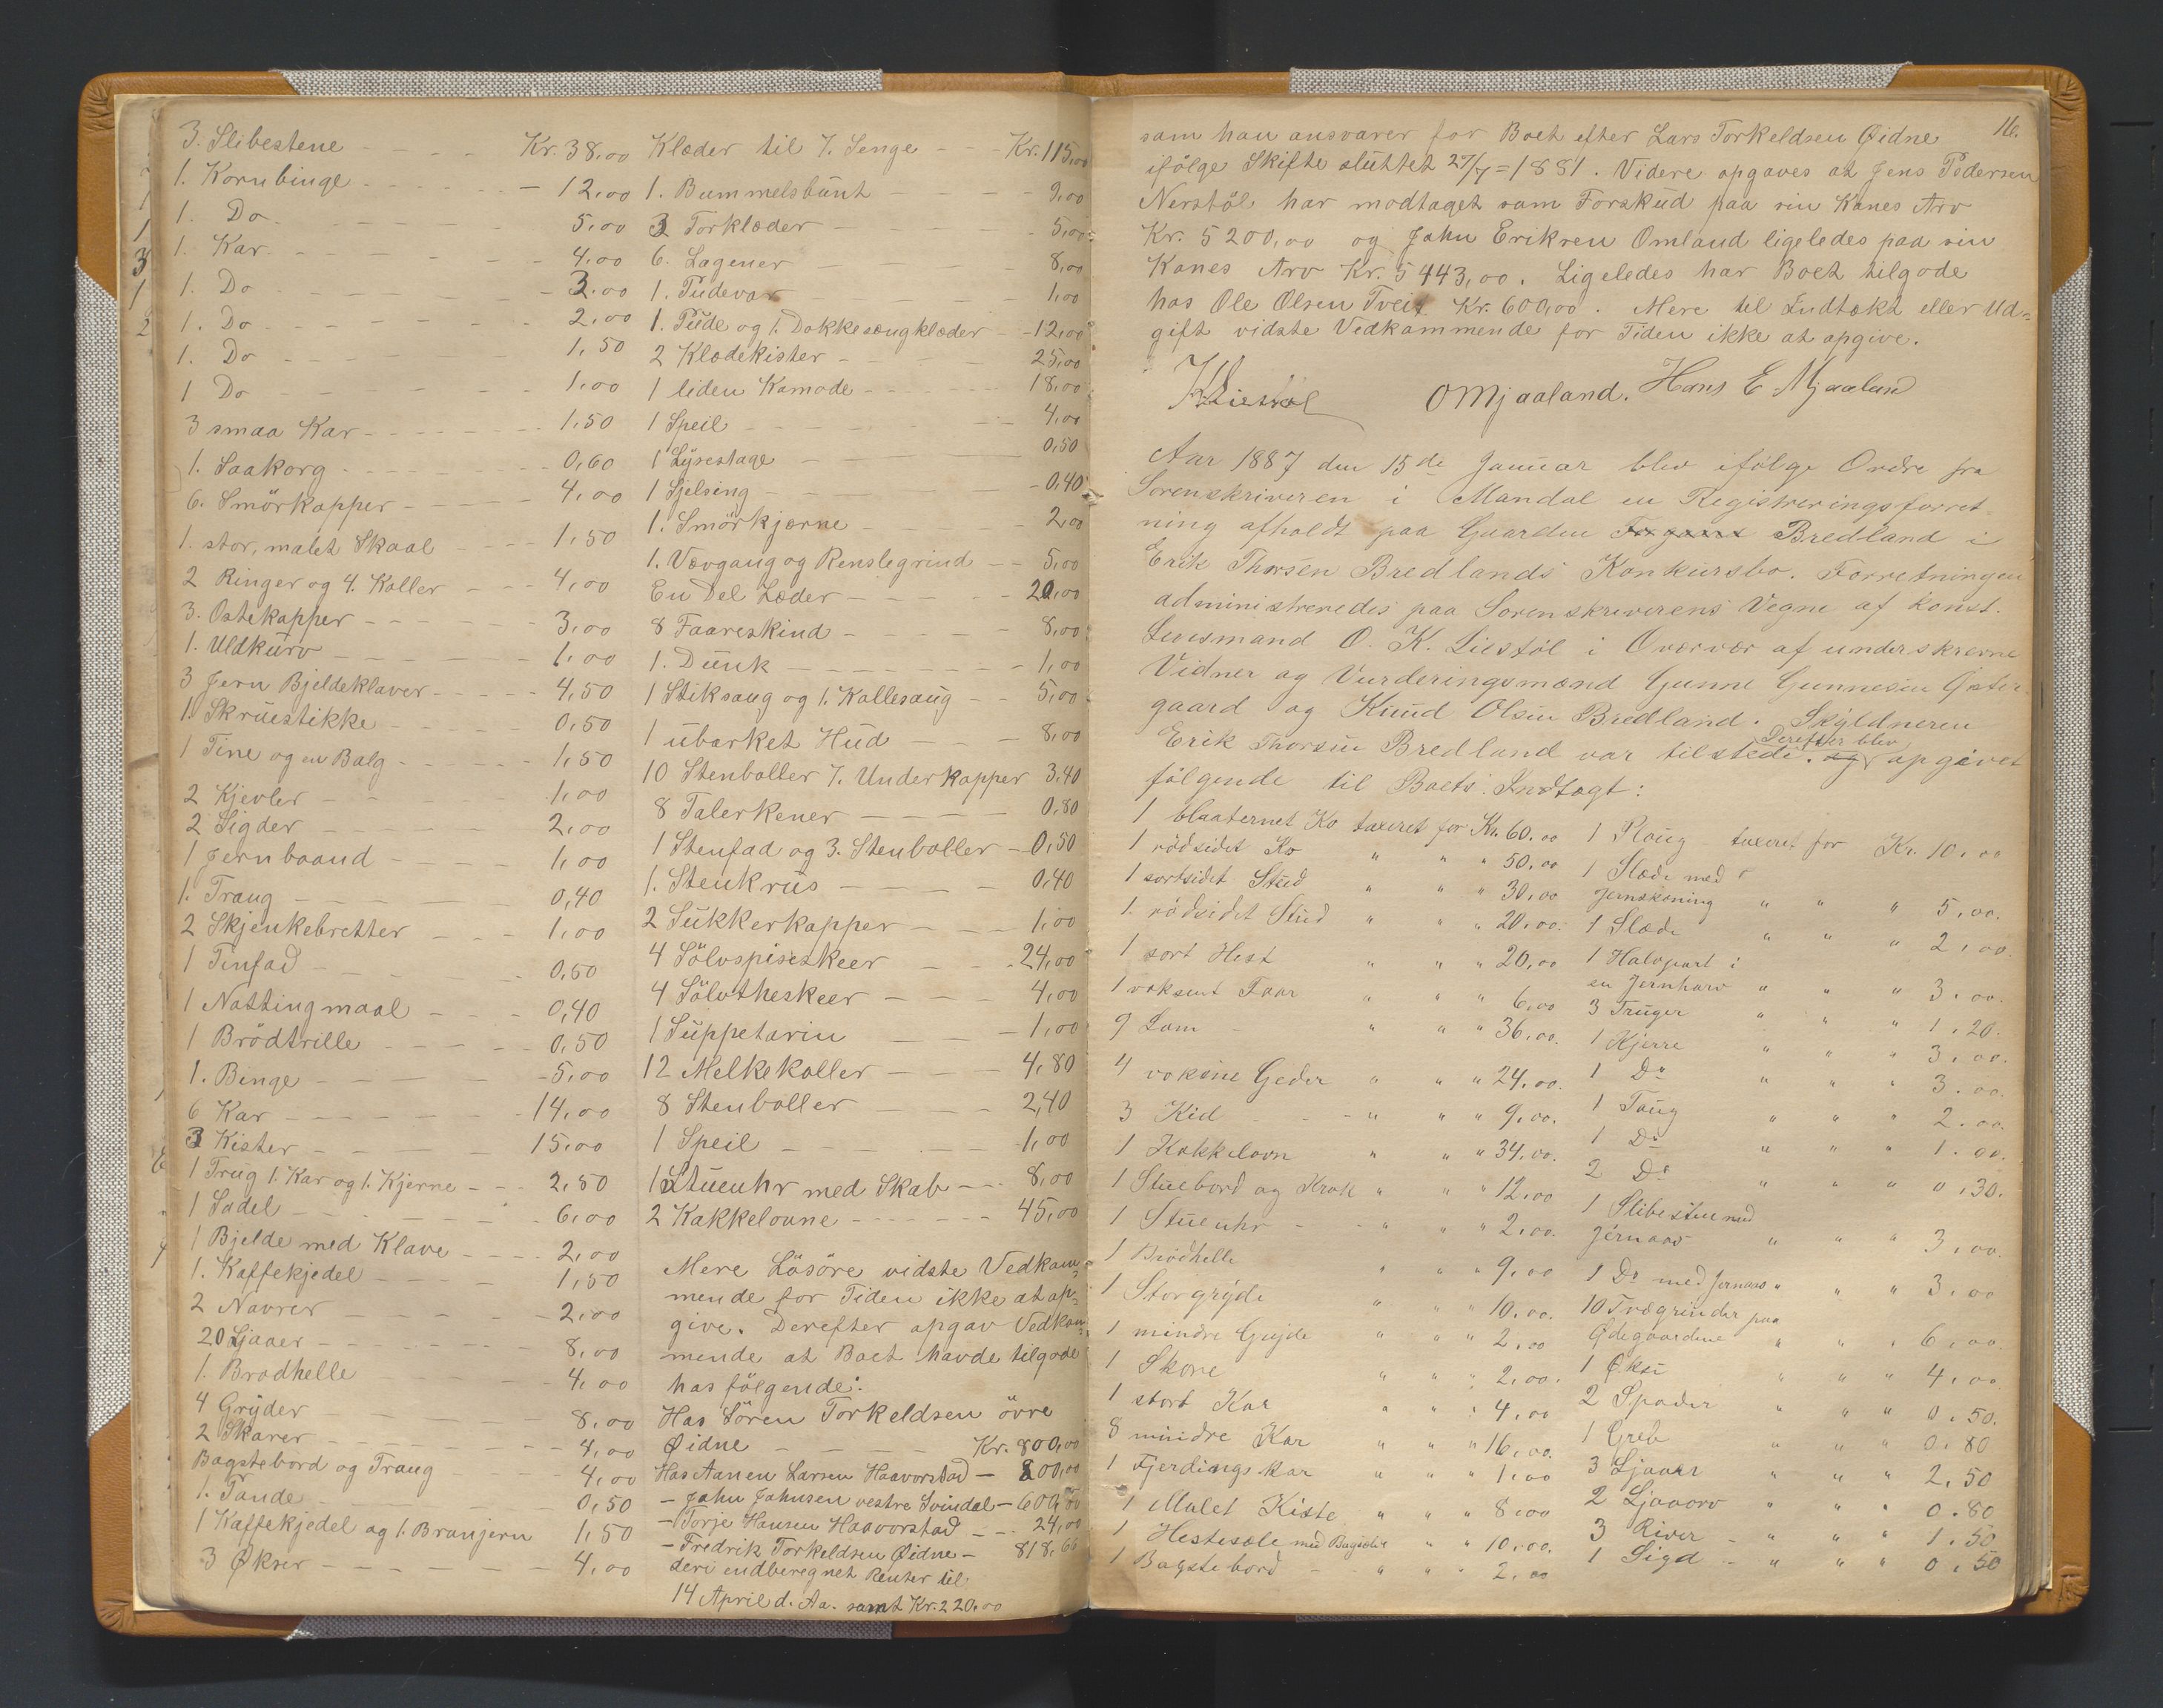 3. Slibestene - - - - Kr. 38,00
1. Kornbinge - - - - - - 12,00
1. Do - - - - - - 5,00
1. Kar - - - - - - 4,00
1. Do - - - - - - 3,00
1. Do - - - - - - 2,00
1. Do - - - - - - 1,50
1 Do - - - - 1,00
3 smaa Kar - - - - - 1,50
1. Saakorg - - - - - - 0,60
6. Smörkopper - - - - 4,00
1. stor, malet Skaal - - - 1,50
2 Ringer og 4. Koller - - - 4,00
3. Ostekopper - - - - - 3,00
1. Uldkurv - - - - - - 1,00
3 Jern Bjeldeklaver - - - - - 4,50
1. Skruestikke - - - - 0,50
1 Tine og en Balg - - - - - 1,50
2 Kjevler - - - - - 1,00
2 Sigder - - - - - 2,00
1 Jernbaand - - - - 1,00
1. Traug - - - - - 0,40
2 Skjenkebretter - - - 1,00
1 Tinfad - - - - - 0,60
1 Nottingmaal - - - 0,40
1 Brödtrille - - - - - 0,50
1. Binge - - - - - 5,00
6 Kar - - - - - - 14,00
3 Kister - - - - - 15,00
1 Trug 1. Kar og 1. Kjerne - - - 2,50
1 Sadel - - - - - - 6,00
1 Bjelde med Klave - - - - 2,00
1. Kaffekjedel - - - - 1,50
2 Navrer - - - - - 2,00
20 Ljaaer - - - - - - 8,00
1. Brödhelle - - - - 4,00
4 Gryder - - - - - 8,00
2 Skarer - - - - - - 4,00
Bagstebord og Traug - - - 4,00
1. Tønde - - - - - 0,50
1 Kaffekjedel og 1. Branjern 1,50
3 Økser - - - - - - 4,00
Klæder til 7. Senge - - - Kr. 115,00
1. Bummelsbunt - - - - 9,00
3 Torklæder - - - - - 5,00
6. Lagener - - - - - 8,00
1. Pudevar - - - - - 1,00
1. Pude og 1. Dokkesengklæder - - 12,00
2 Klædekister - - - - - 25,00
1 liden Komode - - - - - 18,00
1 Speil - - - - - - - 4,00
1 Lysestage - - - - - 0,50
1 Sjelseng - - - - - - 0,40
1. Smörkjærne - - - - - 2,00
1. Vævgang og Renslegrind - - 5,00
En Del Læder - - - - - - 20,00
8 Faareskind - - - - - 8,00
1. Dunk - - - - - - - 1,00
1 Stiksaug og 1. Kollesaug - - 5,00
1 ubarket Hud - - - 8,00
10 Stenboller 7. Underkopper 3,40
8 Talerkener - - - - - 0,80
1 Stenfad og 3. Stenboller - 0,50
1. Stenkrus - - - - - 0,40
2 Sukkerkopper - - - - 1,00
4 Sölvspiseskeer - - - 24,00
4 Sölvtheskeer - - - 4,00
1 Suppeterin - - - 1,00
12 Melkekoller - - - - 4,80
8 Stenboller - - - - 2,40
1 Speil - - - - - 1,00
1 Stueuhr med Skab - - - 8,00
2 Kakkelovne - - - - - - 45,00
Mere Lösöre vidste Vedkom-
mende for Tiden ikke at op-
give. Derefter opgav Vedkom-
mende at Boet havde tilgode
hos följende:
Hos Sören Torkeldsen övre
Øidne - - - - - Kr. 800,00
Hos Aanen Larsen Haavorstad - 800,00
- John Johnsen vestre Svindal - 600,00
- Torje Hansen Haavorstad - - - 24,00
- Fredrik Torkeldsen Øidne - 818,66
deri indberegnet Renter til
14 April d. Aa. samt Kr. 220,00
16.
som han ansvarer for Boet efter Lars Torkeldsen Øidne
ifölge Skifte sluttet 27/7 = 1881. Videre opgaves at Jens Pedersen
Nerstöl har modtaget som Forskud paa sin Kones Arv
Kr. 5200,00 og John Eriksen Omland ligeledes paa sin
Kones Arv Kr. 5443,00. Ligeledes har Boet tilgode
hos Ole Olsen Tveit Kr. 600,00. Mere til Indtækt eller Ud-
gift vidste Vedkommende for Tiden ikke at opgive.
OMjaaland. Hans E Mjaaland
Aar 1887 den 15de Januar blev ifölge Ordre fra
Sorenskriveren i Mandal en Registreringsforret-
ning afholdt paa Gaarden Bredland i
Erik Thorsen Bredlands Konkursbo. Forretningen
administreredes paa Sorenskriverens Vegne af Konst.
Lensmand O. K. Liestöl i Overvær af underskrevne
Vidner og Vurderingsmænd Gunne Gunnesen Öster-
gaard og Knud Olsen Bredland. Skyldneren
Erik Thorsen Bredland var tilstede. og Derefter blev opgivet
fölgende til Boets Indtægt:
1 blaaternet Ko taxeret for Kr. 60,00
1 rödsidet Ko " " " 50,00
1 sortsidet Stud " " " 30,00
1. rödsidet Stud " " " 20,00.
1 sort Hest " " " 20,00
1 voksent Faar " " " 6,00
9 Lam - " " " 36,00.
4 voksne Geder " " " 24,00.
3 Kid - - " " " 9,00.
1 Kakkelovn " " " 34,00.
1 Stuebord og Krak " " " 12,00
1 Stueuhr - - " " " 2,00.
1 Brödhelle " " " 9,00
1 Storgryde " " " 10,00.
1 mindre Gryde " " " 2,00
1 Skore " " " 2,00.
1 stort Kar " " " 4,00
8 mindre Kar " " " 16,00.
1 Fjerdings Kar " " " 1,00
1 Malet Kiste " " " 8,00
1 Hestesæle med Bagsæle " " 10,00.
1 Bagstebord - - " " " 2,00
1 Ploug taxeret for Kr. 10,00
1 Slæde med
Jernskoning " " " 5,00.
1 Slæde " " " 2,00
1 Halvpart i
en Jernharv " " " 3,00.
3 Truger " " " 1,20.
1 Kjerre " " " 3,00.
1 Do " " " 3,00.
1 Taug " " " 2,00.
1 Do " " " 1,00.
2 Do " " " 0,30.
1 Slibesten med
Jernaas " " " 3,00.
1 Do med Jernaas " " " 3,00
10 Trægrinder paa
Ødegaardene " " " 6,00.
1 Økse " " " 4,00
2 Spader " " " 0,50.
1 Greb " " " 0,80
3 Ljaaer " " " 2,50
2 Ljaaorv " " " 0,80
3 River - " " " 1,50
1 Sigd - " " " 0,50